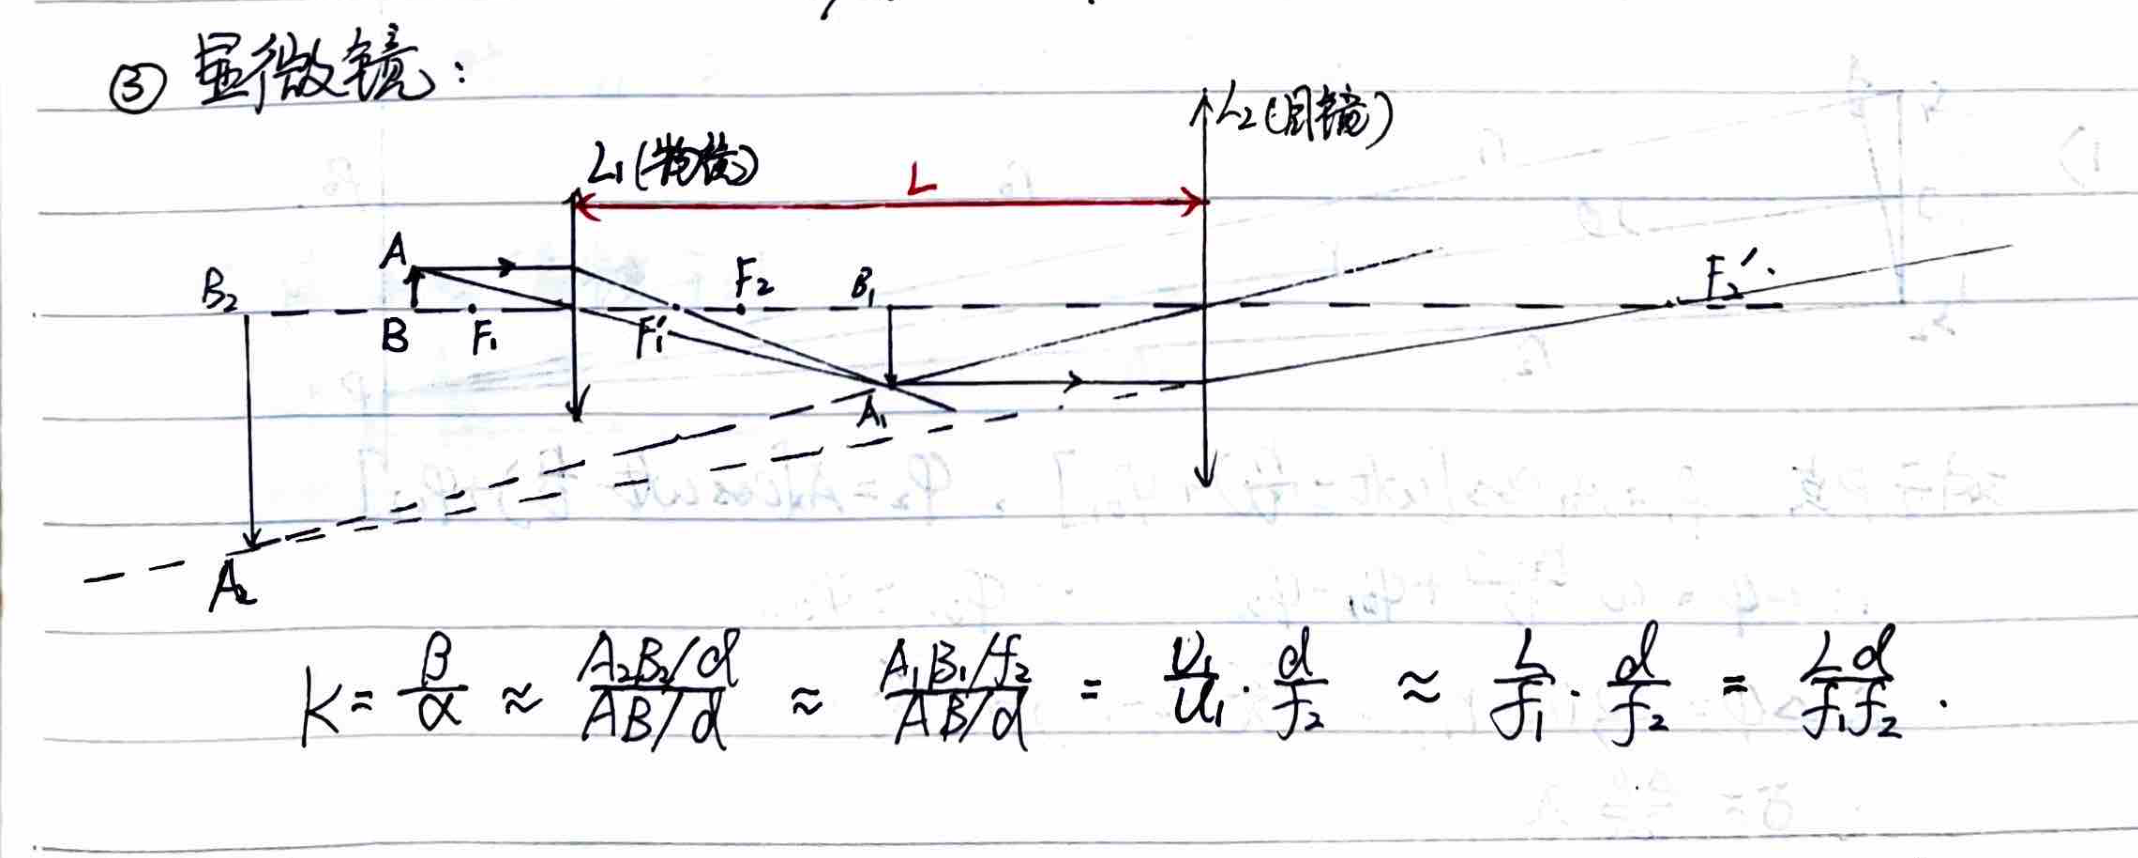 ③ 显微镜：
L₂(目镜)
L₁(物镜)
L
A
B₂
F₂
B₁
F₂′
B
F₁
F₁′
A₁
A₂
K = β/α ≈ (A₂B₂/d)/(AB/d) ≈ (A₁B₁/f₂)/(AB/d) = υ₁/u₁ · d/f₂ ≈ L/f₁ · d/f₂ = Ld/f₁f₂ .